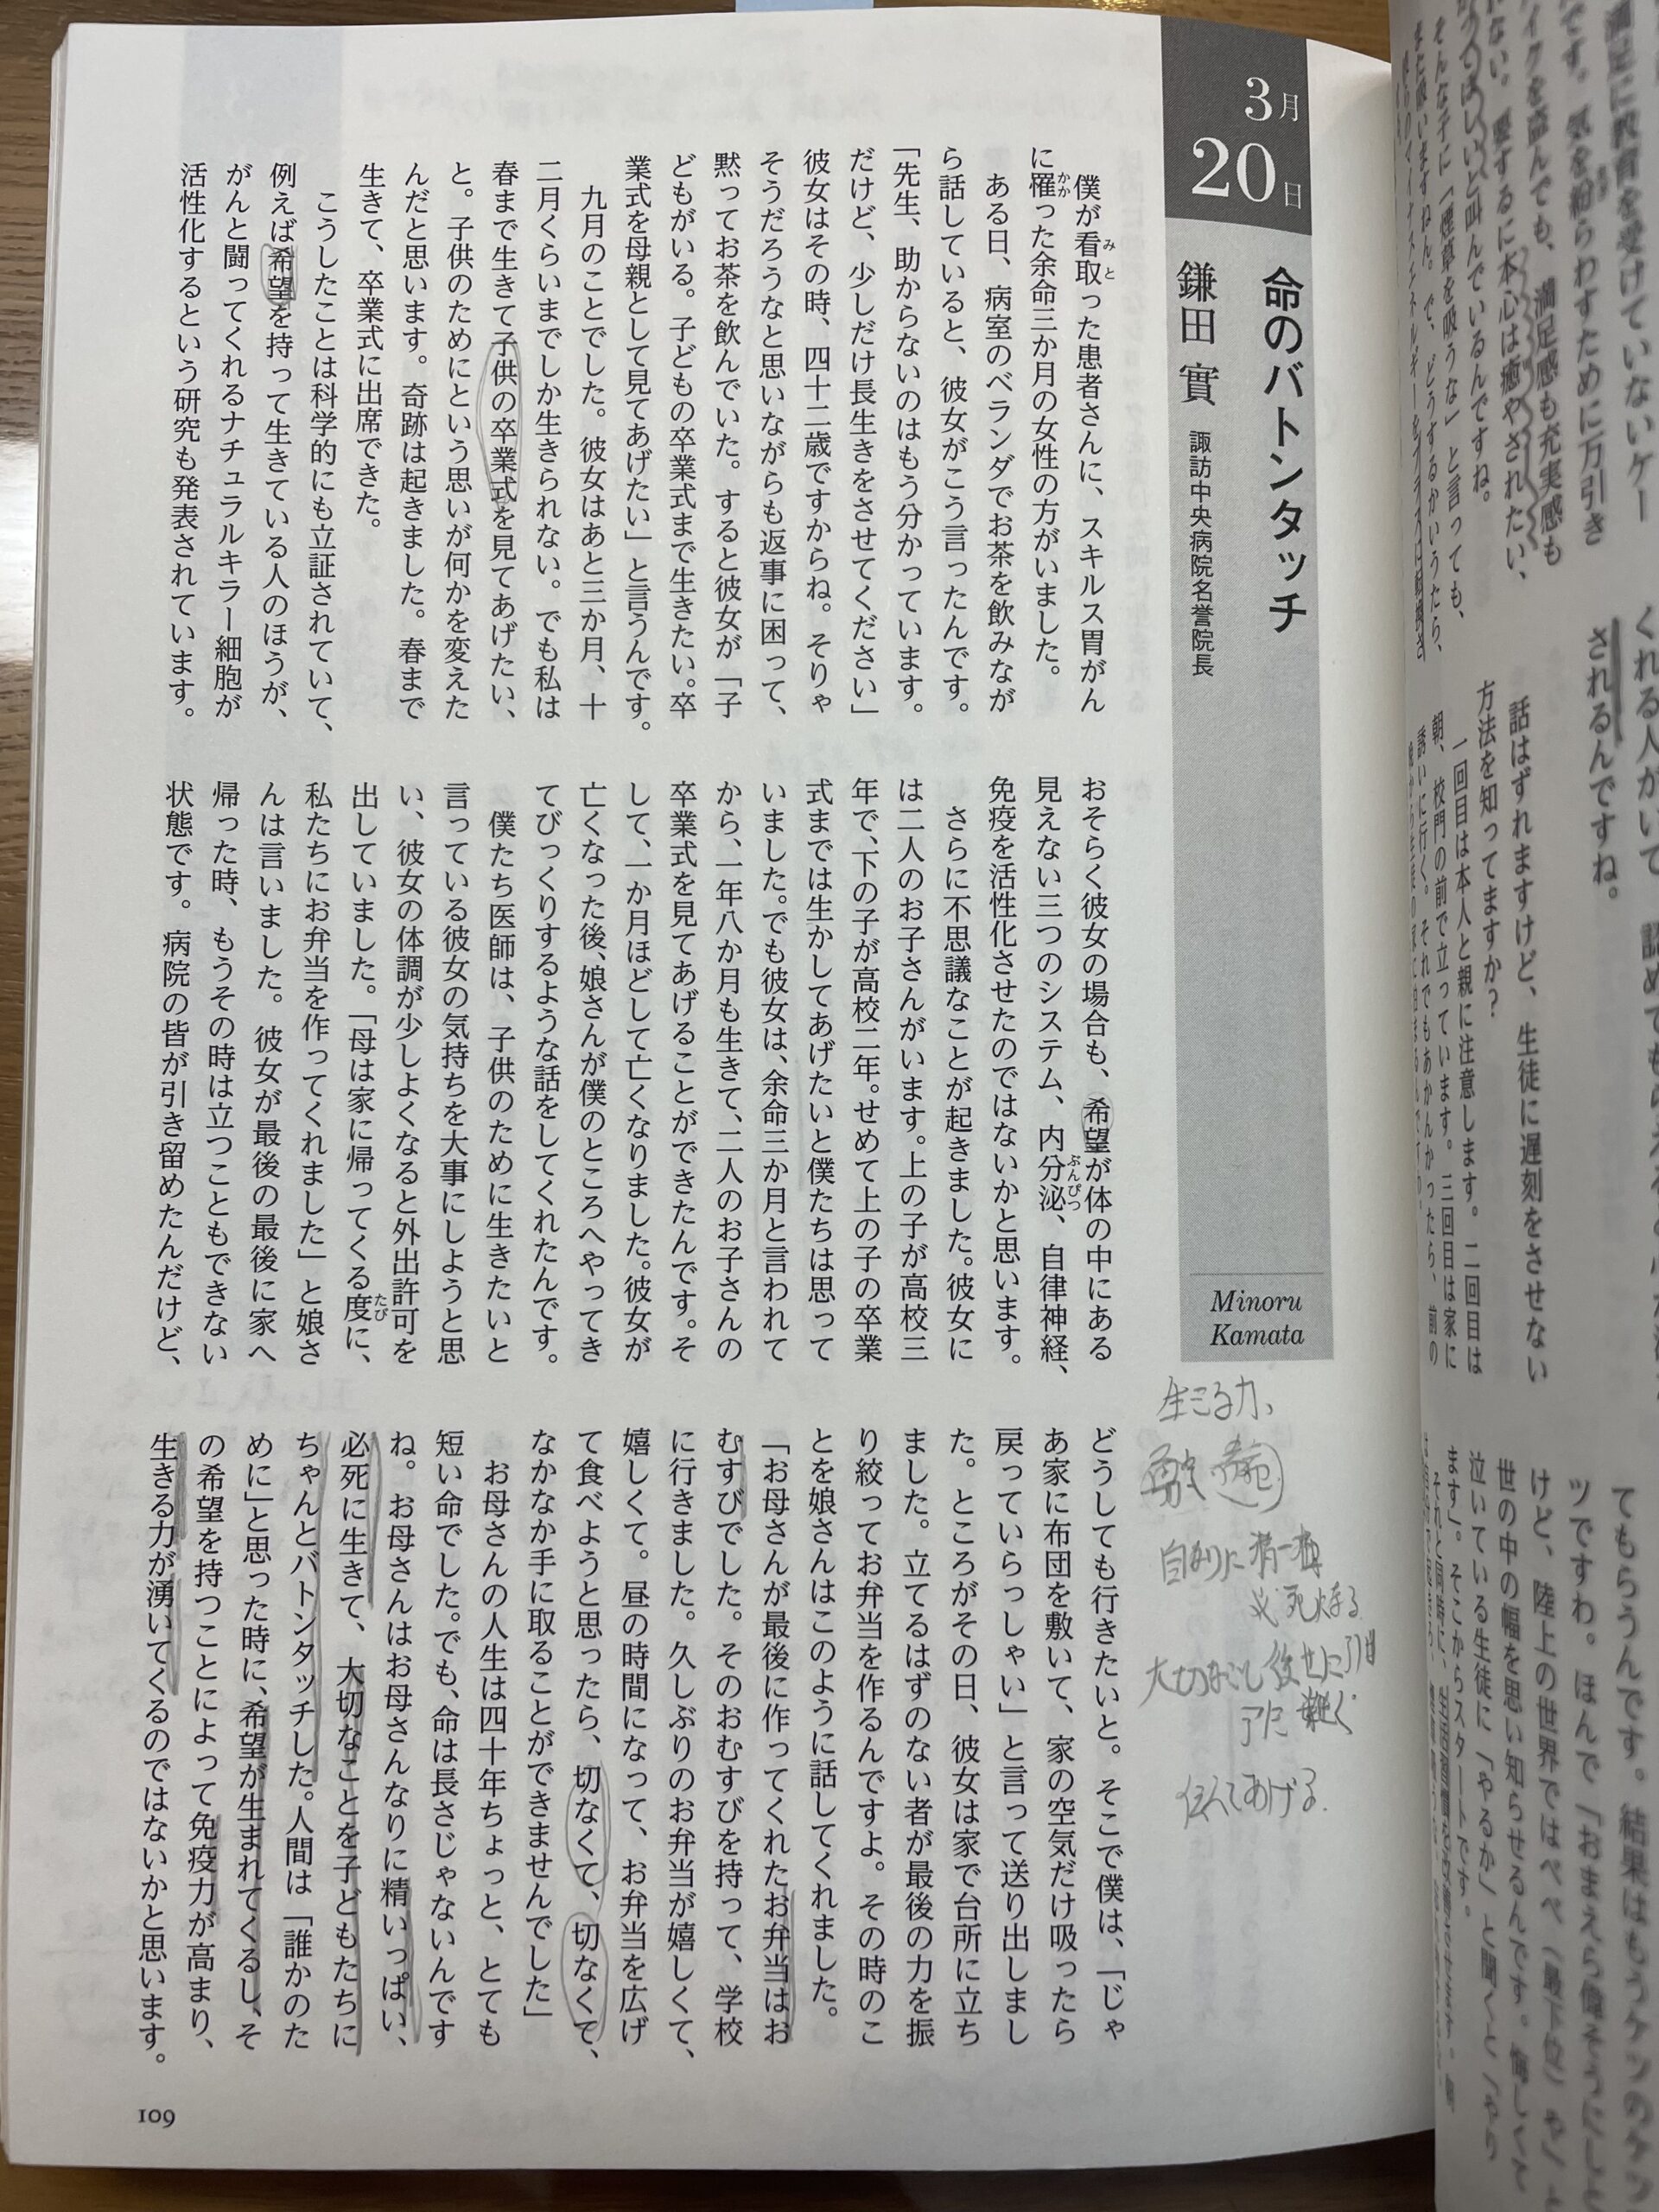 3月
20日
命のバトンタッチ
鎌田 實
諏訪中央病院名誉院長
Minoru
Kamata
僕が看取った患者さんに、スキルス胃がん
に罹った余命三か月の女性の方がいました。
ある日、病室のベランダでお茶を飲みなが
ら話していると、彼女がこう言ったんです。
「先生、助からないのはもう分かっています。
だけど、少しだけ長生きをさせてください」
彼女はその時、四十二歳ですからね。そりゃ
そうだろうなと思いながらも返事に困って、
黙ってお茶を飲んでいた。すると彼女が「子
どもがいる。子どもの卒業式まで生きたい。卒
業式を母親として見てあげたい」と言うんです。
九月のことでした。彼女はあと三か月、十
二月くらいまでしか生きられない。でも私は
春まで生きて子供の卒業式を見てあげたい、
と。子供のためにという思いが何かを変えた
んだと思います。奇跡は起きました。春まで
生きて、卒業式に出席できた。
こうしたことは科学的にも立証されていて、
例えば希望を持って生きている人のほうが、
がんと闘ってくれるナチュラルキラー細胞が
活性化するという研究も発表されています。
おそらく彼女の場合も、希望が体の中にある
見えない三つのシステム、内分泌、自律神経、
免疫を活性化させたのではないかと思います。
さらに不思議なことが起きました。彼女に
は二人のお子さんがいます。上の子が高校三
年で、下の子が高校二年。せめて上の子の卒業
式までは生かしてあげたいと僕たちは思って
いました。でも彼女は、余命三か月と言われて
から、一年八か月も生きて、二人のお子さんの
卒業式を見てあげることができたんです。そ
して、一か月ほどして亡くなりました。彼女が
亡くなった後、娘さんが僕のところへやってき
てびっくりするような話をしてくれたんです。
僕たち医師は、子供のために生きたいと
言っている彼女の気持ちを大事にしようと思
い、彼女の体調が少しよくなると外出許可を
出していました。「母は家に帰ってくる度に、
私たちにお弁当を作ってくれました」と娘さ
んは言いました。彼女が最後の最後に家へ
帰った時、もうその時は立つこともできない
状態です。病院の皆が引き留めたんだけど、
どうしても行きたいと。そこで僕は、「じゃ
あ家に布団を敷いて、家の空気だけ吸ったら
戻っていらっしゃい」と言って送り出しまし
た。ところがその日、彼女は家で台所に立ち
ました。立てるはずのない者が最後の力を振
り絞ってお弁当を作るんですよ。その時のこ
とを娘さんはこのように話してくれました。
「お母さんが最後に作ってくれたお弁当はお
むすびでした。そのおむすびを持って、学校
に行きました。久しぶりのお弁当が嬉しくて、
嬉しくて。昼の時間になって、お弁当を広げ
て食べようと思ったら、切なくて、切なくて、
なかなか手に取ることができませんでした」
お母さんの人生は四十年ちょっと、とても
短い命でした。でも、命は長さじゃないんです
ね。お母さんはお母さんなりに精いっぱい、
必死に生きて、大切なことを子どもたちに
ちゃんとバトンタッチした。人間は「誰かのた
めに」と思った時に、希望が生まれてくるし、そ
の希望を持つことによって免疫力が高まり、
生きる力が湧いてくるのではないかと思います。
109
生きる力、
伝えてあげる
話はずれますけど、生徒に遅刻をさせない
方法を知ってますか？
一回目は本人と親に注意します。二回目は
朝、校門の前で立っています。三回目は家に
されるんですね。